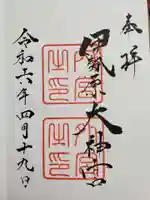 奉拝
伊勢原大神宮
令和六年四月十九日